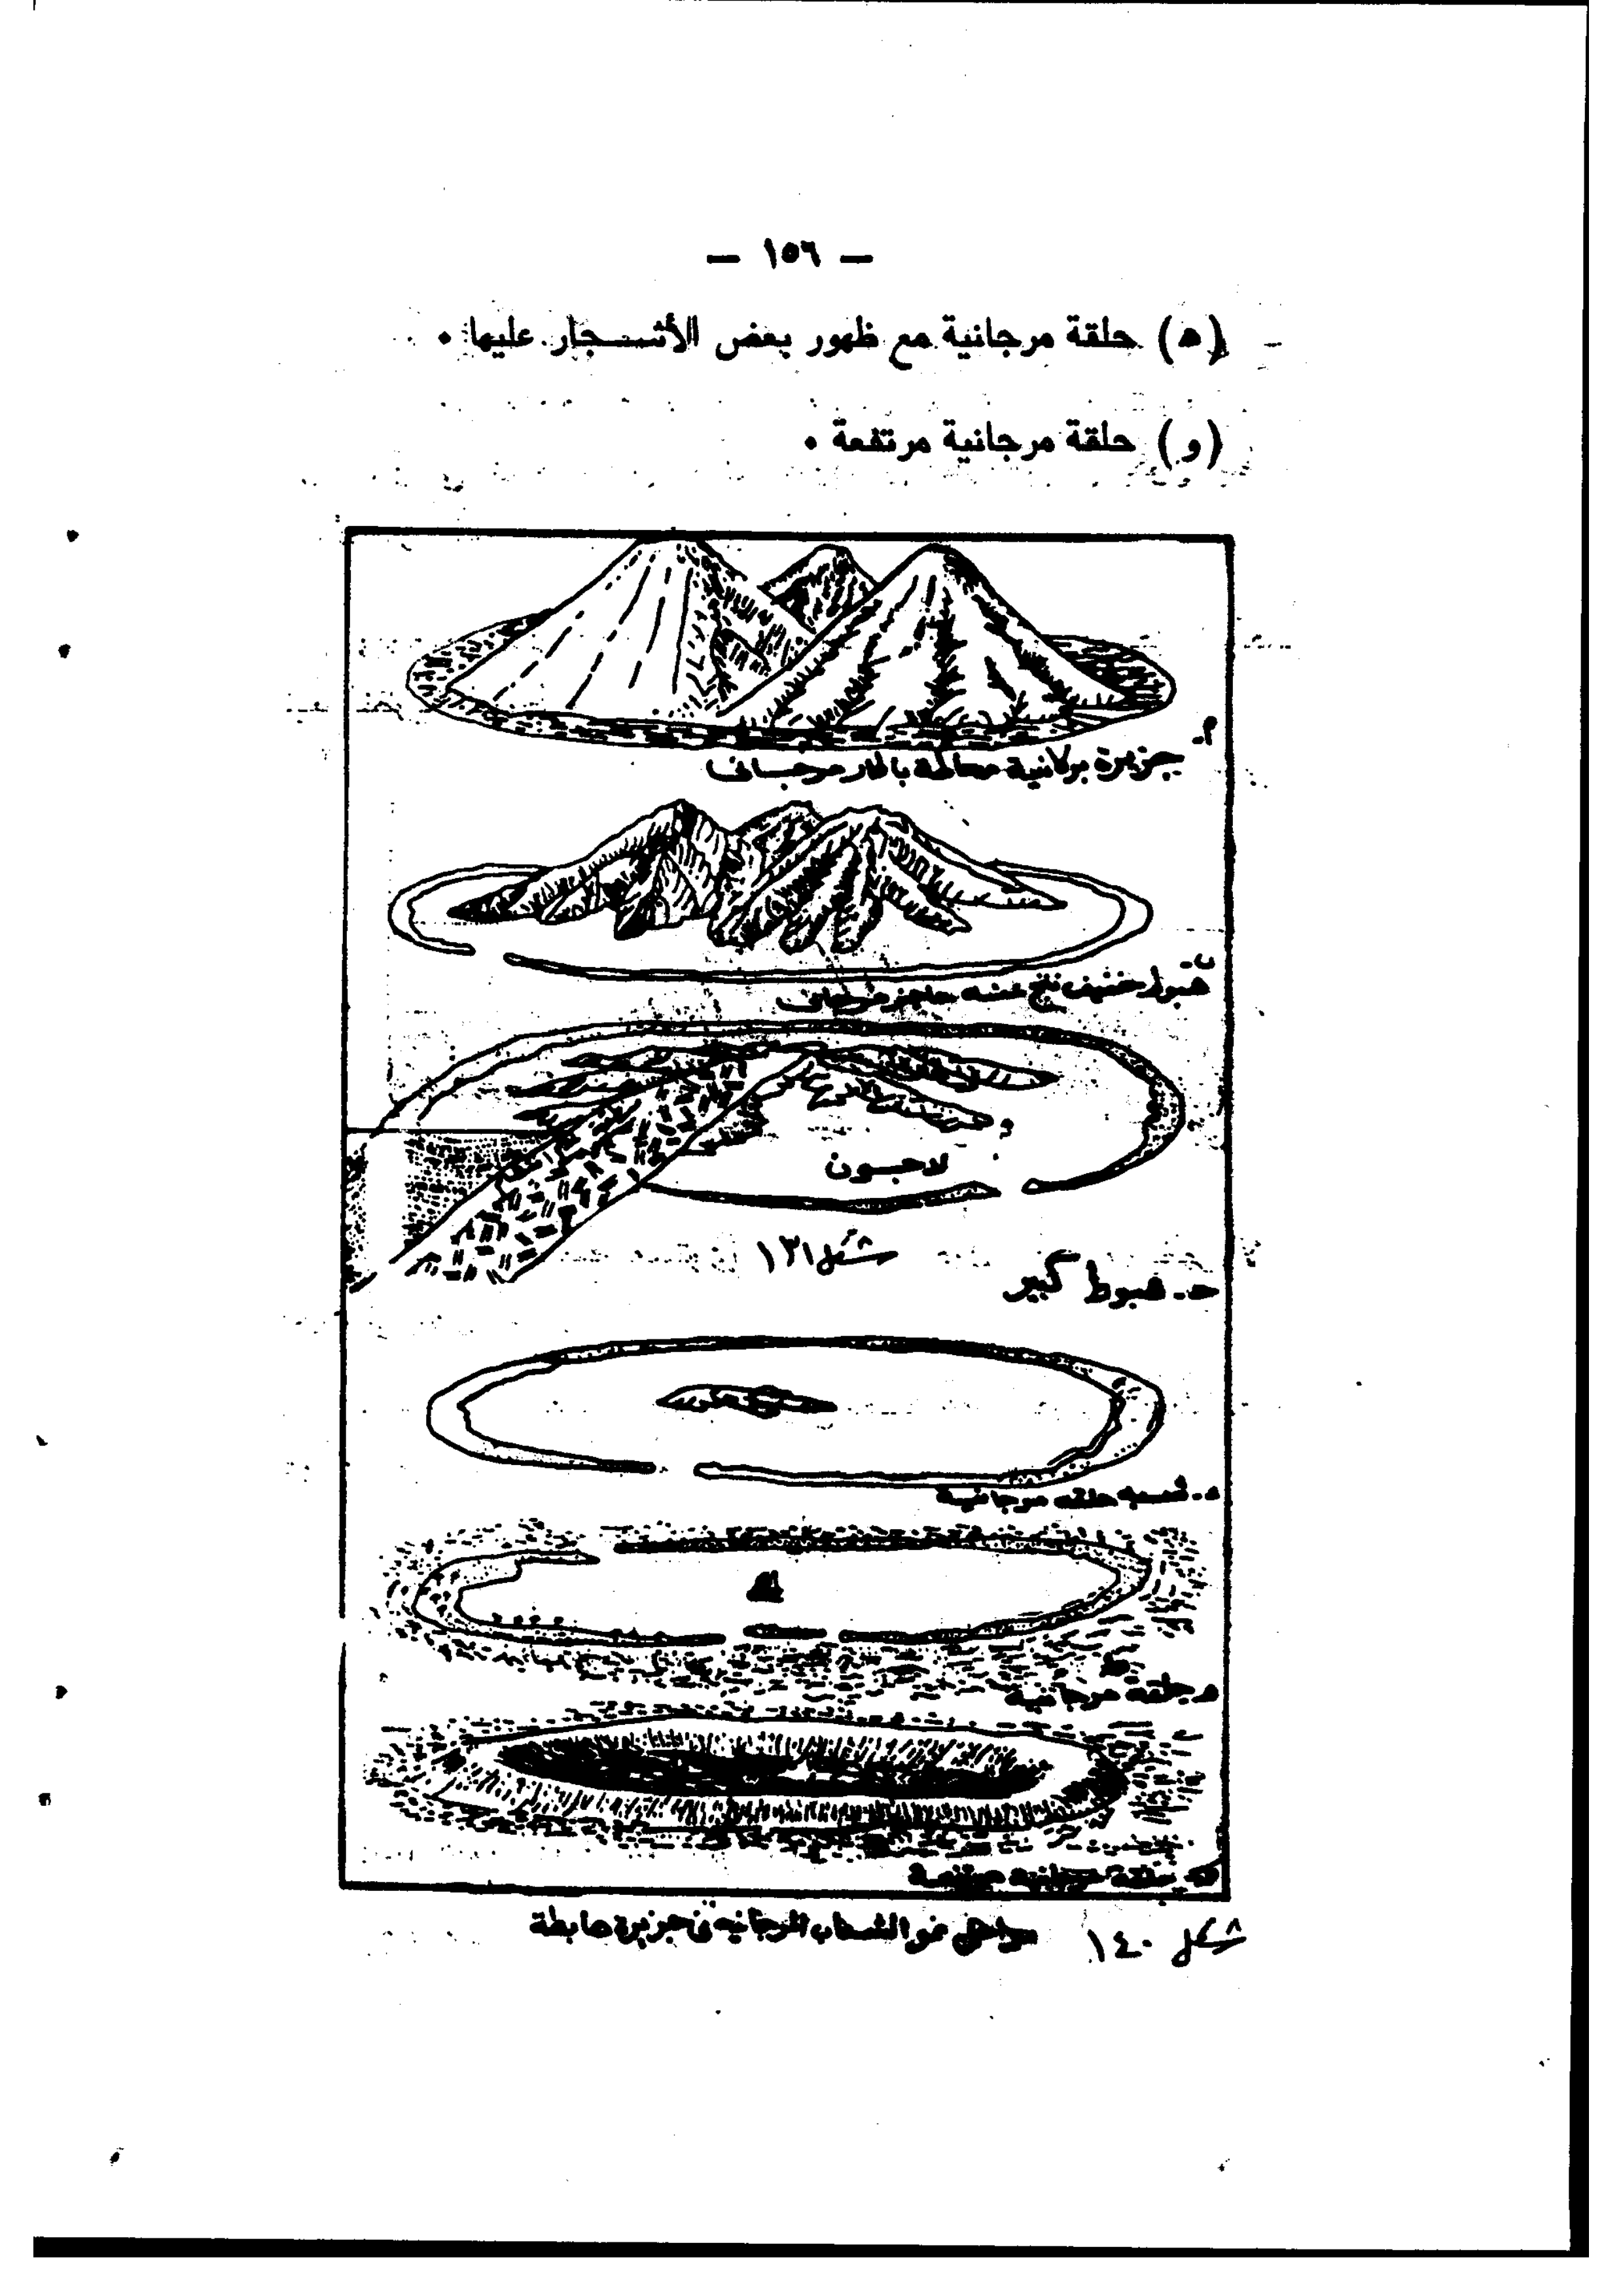 — ١٥٦ —
(ه) حلقة مرجانية مع ظهور بعض الأشجار عليها .
(و) حلقة مرجانية مرتفعة .
أ-
جزيرة بركانية محاطة باطار مرجانى
ب-
هبوط خفيف نتج عنه حاجز مرجانى
لاجون
شكل ١٣١
حـ- هبوط كبير
د- شبه حلقه مرجانية
هـ حلقه مرجانيه
و- حلقة مرجانيه مرتفعة
شكل ١٤٠ مراحل نمو الشعاب المرجانيه فى جزيرة هابطة